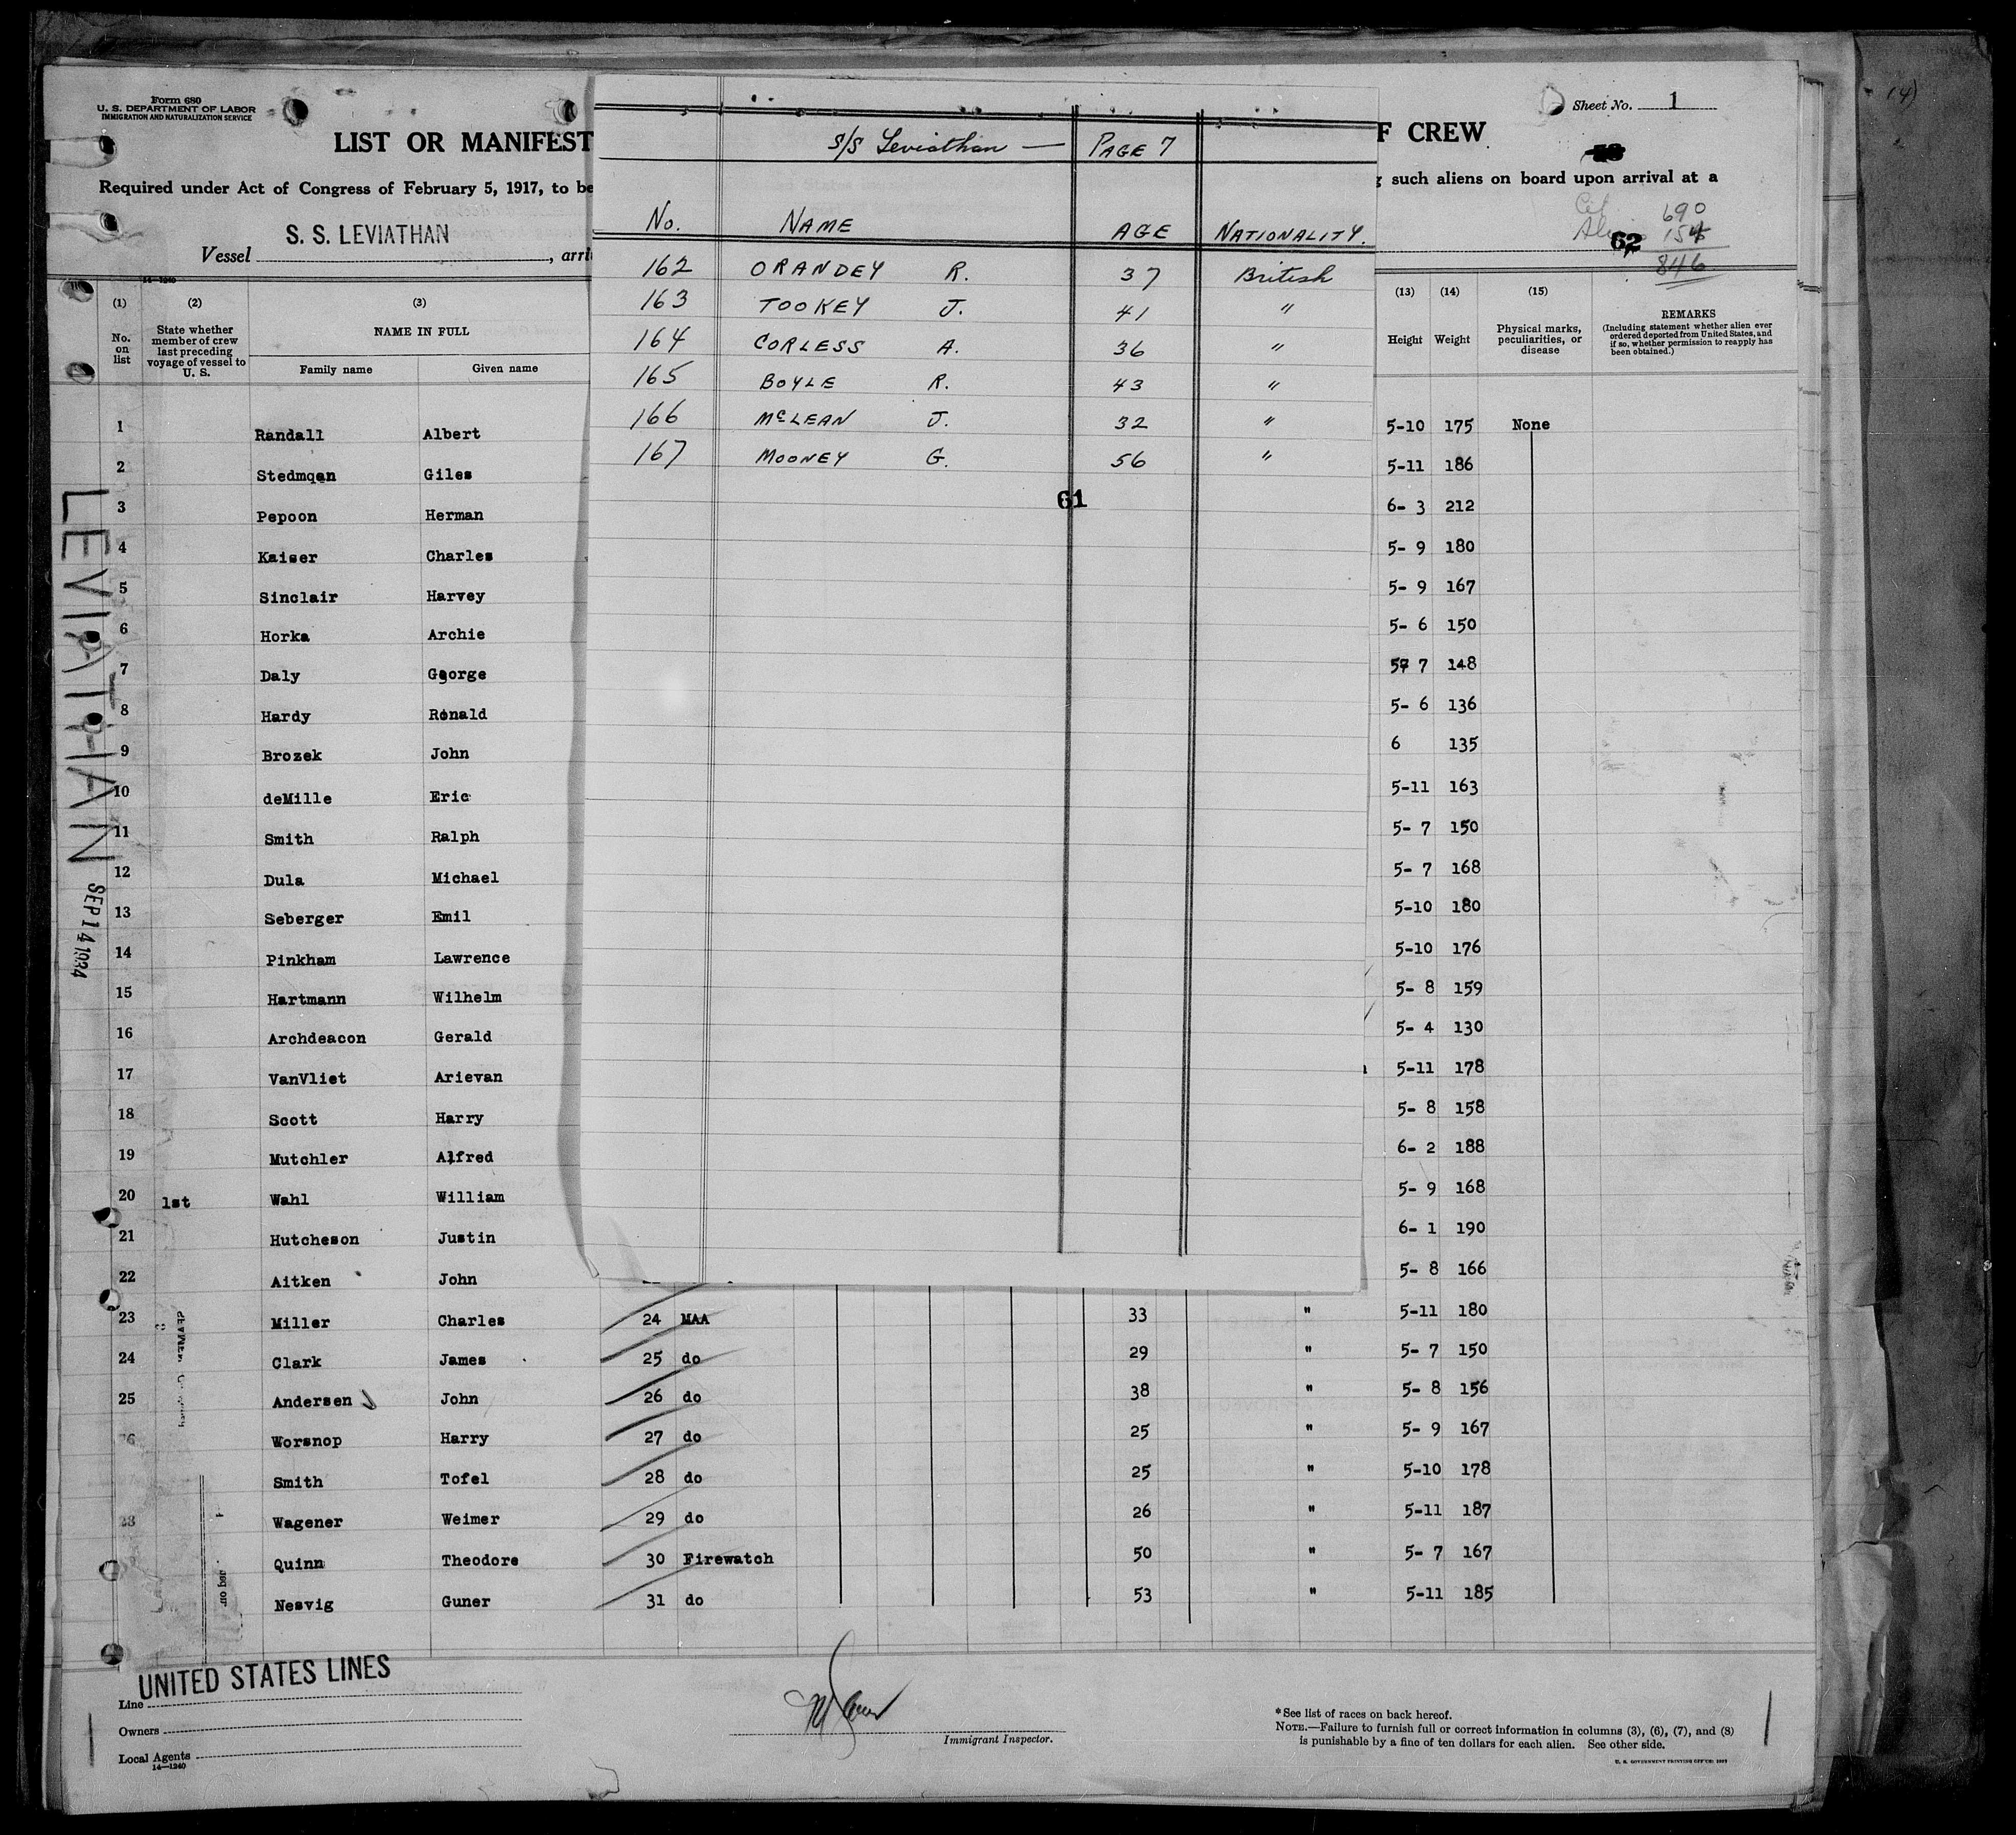 Form 680
U. S. DEPARTMENT OF LABOR
IMMIGRATION AND NATURALIZATION SERVICE
Sheet No. 1
LIST OR MANIFEST
F CREW
Required under Act of Congress of February 5, 1917, to be
such aliens on board upon arrival at a
690
154
846
62
Vessel S. S. LEVIATHAN, arri
S/S Leviathan — PAGE 7
No. NAME AGE NATIONALITY.
162 ORANDEY R. 37 British
163 TOOKEY J. 41 "
164 CORLESS A. 36 "
165 BOYLE R. 43 "
166 McLEAN J. 32 "
167 MOONEY G. 56 "
61
14—1240
(1) (2) (3) (13) (14) (15)
No. on list
State whether member of crew last preceding voyage of vessel to U. S.
NAME IN FULL
Family name Given name
Height Weight
Physical marks, peculiarities, or disease
REMARKS
(Including statement whether alien ever ordered deported from United States, and if so, whether permission to reapply has been obtained.)
1 Randall Albert 5-10 175 None
2 Stedmqan Giles 5-11 186
3 Pepoon Herman 6- 3 212
4 Kaiser Charles 5- 9 180
5 Sinclair Harvey 5- 9 167
6 Horka Archie 5- 6 150
7 Daly George 5- 7 148
8 Hardy Ronald 5- 6 136
9 Brozek John 6 135
10 deMille Eric 5-11 163
11 Smith Ralph 5- 7 150
12 Dula Michael 5- 7 168
13 Seberger Emil 5-10 180
14 Pinkham Lawrence 5-10 176
15 Hartmann Wilhelm 5- 8 159
16 Archdeacon Gerald 5- 4 130
17 VanVliet Arievan 5-11 178
18 Scott Harry 5- 8 158
19 Mutchler Alfred 6- 2 188
20 1st Wahl William 5- 9 168
21 Hutcheson Justin 6- 1 190
22 Aitken John 5- 8 166
23 Miller Charles 24 MAA 33 " 5-11 180
24 Clark James 25 do 29 " 5- 7 150
25 Andersen John 26 do 38 " 5- 8 156
26 Worsnop Harry 27 do 25 " 5- 9 167
Smith Tofel 28 do 25 " 5-10 178
28 Wagener Weimer 29 do 26 " 5-11 187
Quinn Theodore 30 Firewatch 50 " 5- 7 167
Nesvig Guner 31 do 53 " 5-11 185
LEVIATHAN
SEP 14 1934
Line UNITED STATES LINES
Owners
Local Agents
14—1240
Immigrant Inspector.
*See list of races on back hereof.
NOTE.—Failure to furnish full or correct information in columns (3), (6), (7), and (8)
is punishable by a fine of ten dollars for each alien. See other side.